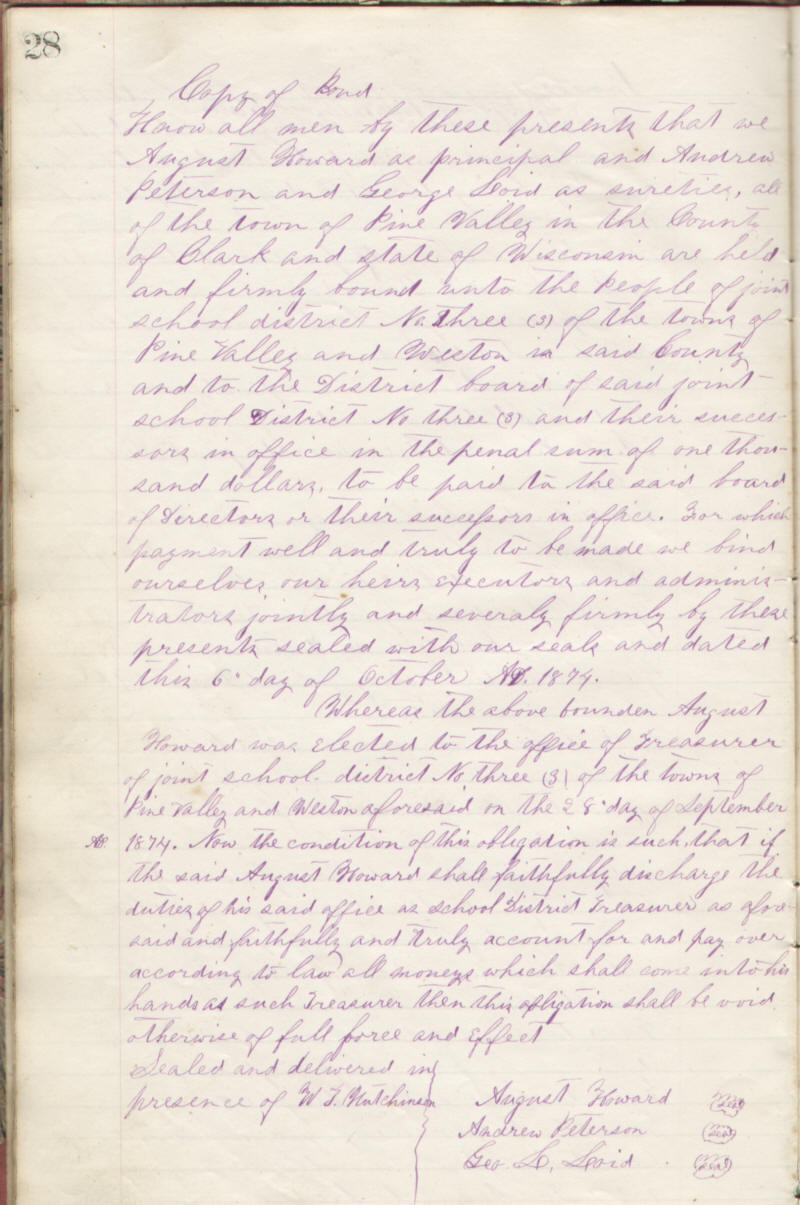 28
Copy of Bond
Know all men by these presents that we
August Howard as principal and Andrew
Peterson and George Loid as sureties, all
of the town of Pine Valley in the County
of Clark and state of Wisconsin are held
and firmly bound unto the People of joint
school district No. Three (3) of the towns of
Pine Valley and Weston in said County
and to the District board of said joint
school District No three (3) and their succes-
sors in office in the penal sum of one thou-
sand dollars, to be paid to the said board
of Directors or their successors in office. For which
payment well and truly to be made we bind
ourselves our heirs executors and adminis-
trators jointly and severaly firmly by these
presents sealed with our seals and dated
this 6" day of October AD. 1874.
Whereas the above bounden August
Howard was elected to the office of Treasurer
of joint school district No three (3) of the towns of
Pine Valley and Weston aforesaid on the 28" day of September
AD. 1874. Now the condition of this obligation is such, that if
the said August Howard shall faithfully discharge the
duties of his said office as school District Treasurer as afore-
said and faithfully and truly account for and pay over
according to law all moneys which shall come into his
hands as such Treasurer then this obligation shall be void
otherwise of full force and Effect
Sealed and delivered in
presence of W. F. Hutchinson
August Howard (seal)
Andrew Peterson (seal)
Geo. L. Loid (seal)